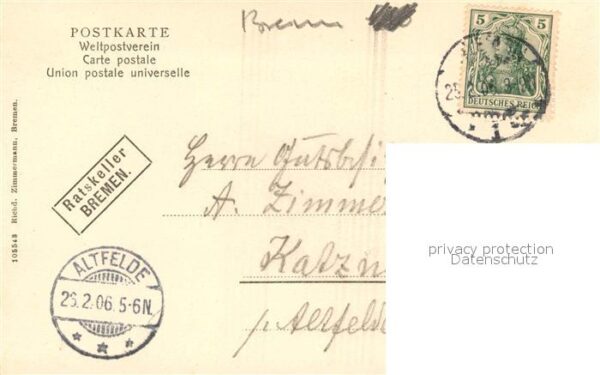 Bremen
POSTKARTE
Weltpostverein
Carte postale
Union postale universelle
5 5
DEUTSCHES REICH
25.2.06
1
105543 Richd. Zimmermann, Bremen.
Ratskeller
BREMEN.
Herrn Gutsbesi
A. Zimme
Katzn
p/Altfelde
ALTFELDE
26.2.06.5-6N.
privacy protection
Datenschutz